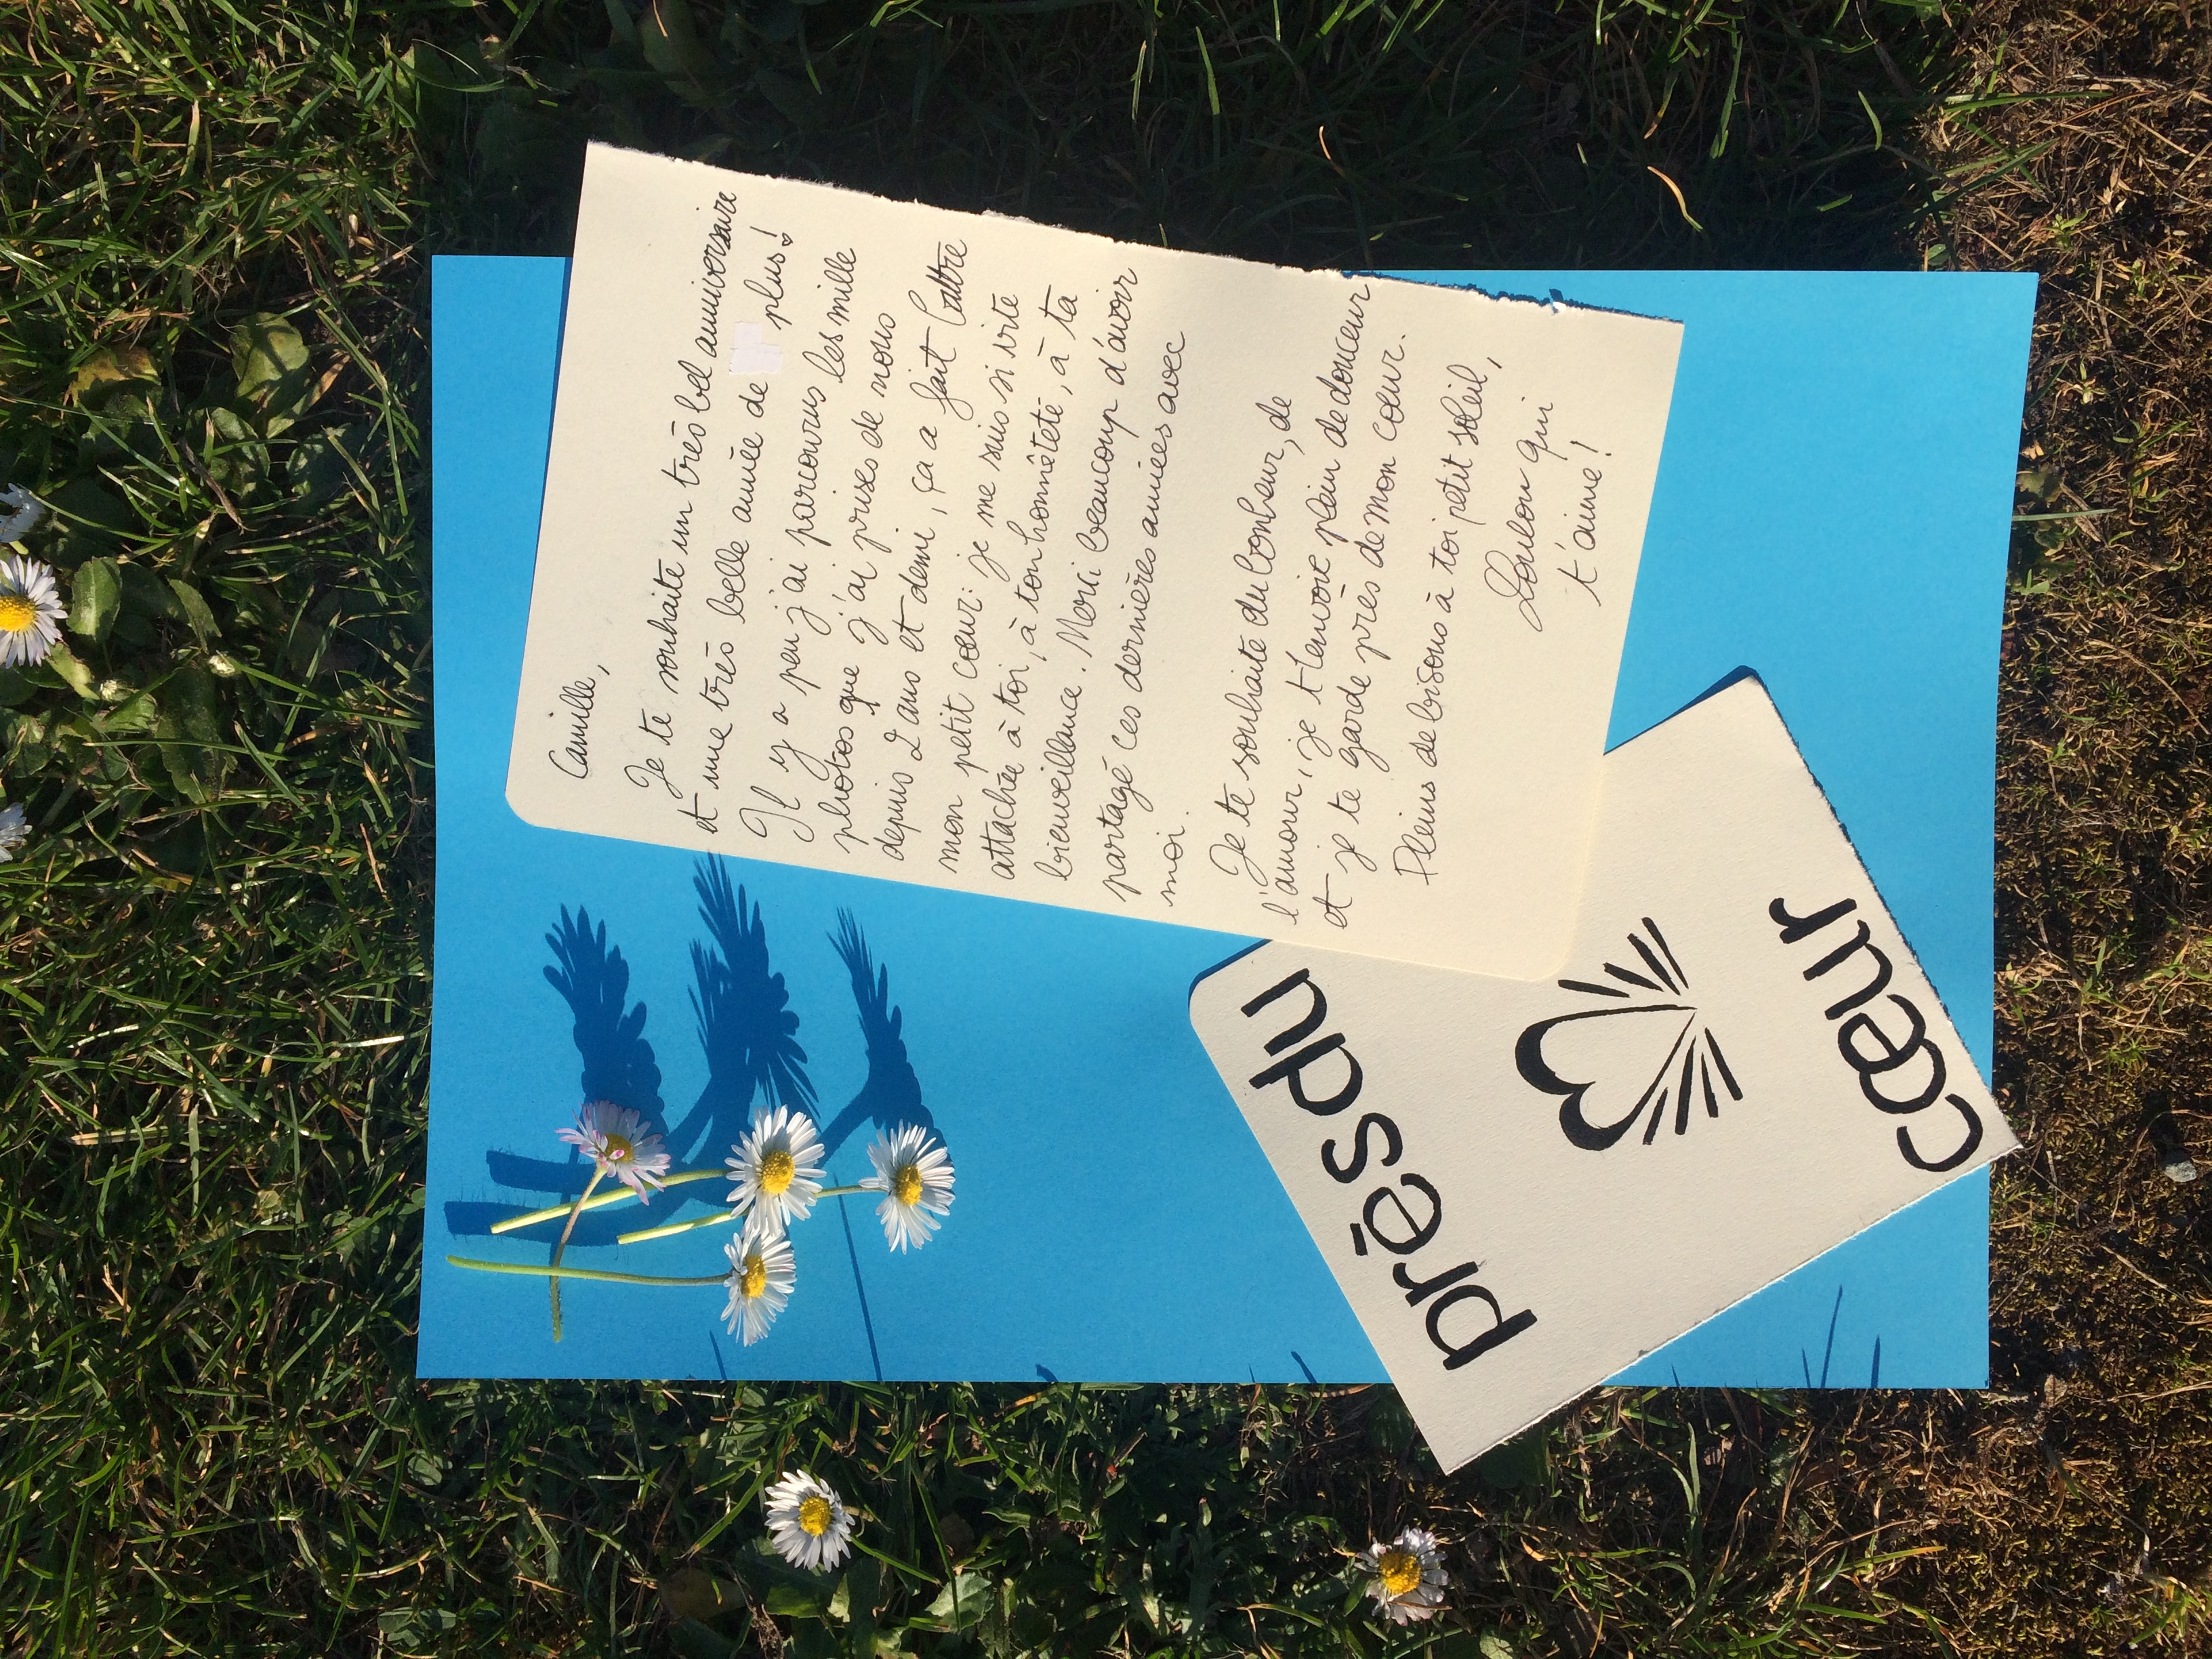 Camille,
Je te souhaite un très bel anniversaire
et une très belle année de plus!
Il y a peu j'ai parcourus les mille
photos que j'ai prises de nous
depuis 2 ans et demi, ça a fait battre
mon petit cœur: je me suis si vite
attachée à toi, à ton honnêteté, à ta
bienveillance. Merci beaucoup d'avoir
partagé ces dernières années avec
moi.
Je te souhaite du bonheur, de
l'amour, je t'envoie plein de douceur
et je te garde près de mon cœur.
Pleins de bisous à toi petit soleil,
Loulou qui
t'aime!
près du
cœur